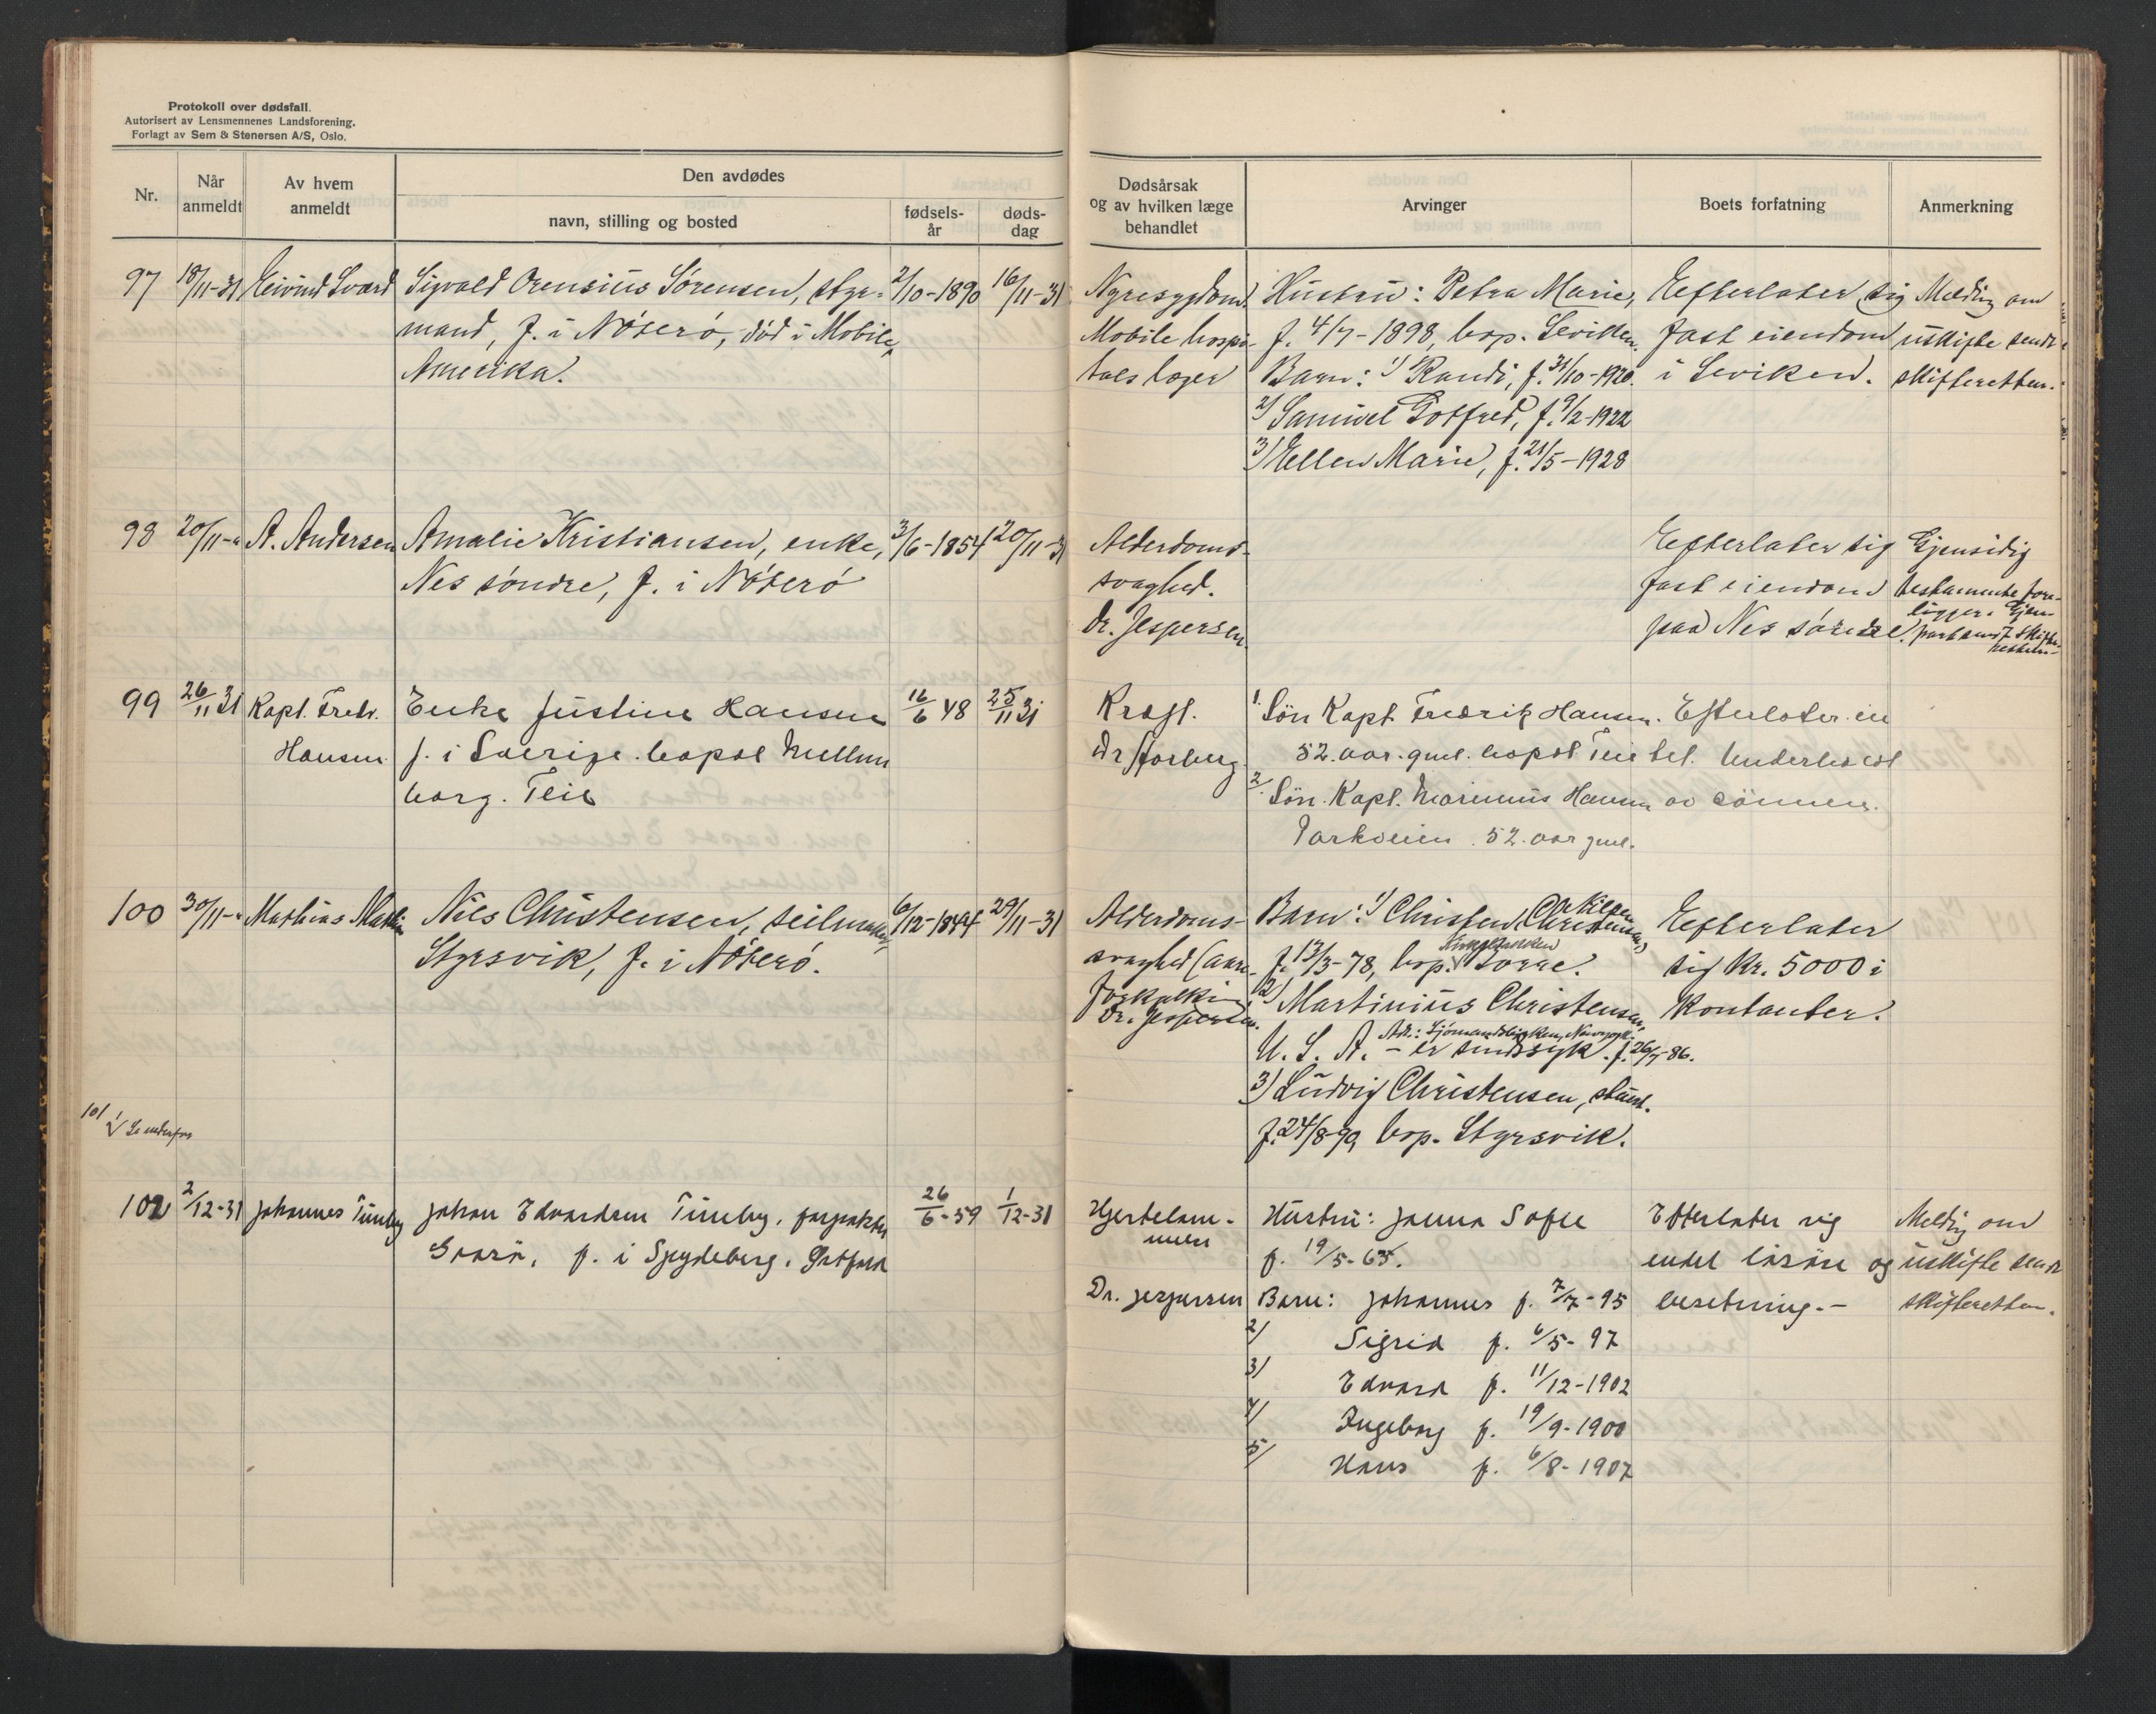 Protokoll over dødsfall.
Autorisert av Lensmennenes Landsforening.
Forlagt av Sem & Stenersen A/S, Oslo.
Nr.
Når anmeldt
Av hvem anmeldt
Den avdødes
navn, stilling og bosted
fødsels-år
døds-dag
Dødsårsak og av hvilken læge behandlet
Arvinger
Boets forfatning
Anmerkning
97 18/11-31 Eivind Sværd Sigvald Orensius Sørensen, styr- 2/10-1890 16/11-31
mand, f. i Nöterö, död i Mobile,
Amerika.
Nyresygdom.
Mobile hospi-
tals læger
Hustru: Petra Marie,
f. 4/7-1898, bop. Leviken.
Barn: 1) Randi, f. 31/10-1920.
2) Samuel Gotfred, f. 9/2-1922
3) Ellen Marie, f. 21/5-1928
Efterlater sig
fast eiendom
i Leviken.
Melding om
uskifte sendt
skifteretten.
98 20/11-" A. Andersen Amalie Kristiansen, enke, 3/6-1854 20/11-31
Nes söndre, f. i Nöterö
Alderdoms-
svaghed.
Dr. Jespersen.
Efterlater sig
fast eiendom
paa Nes söndre.
Gjensidig
testamente fore-
ligger. Gjen-
part sendt skifte-
retten-
99 26/11 31 Kapt. Fredr. Enke Justine Hansen 16/6 48 25/11 31
Hansen f. i Sverige. bopæl Mellum
borg. Teie
Kræft.
Dr
1. Sön Kapt. Fredrik Hansen.
52. aar. gml. bopæl Teie
2. Sön. Kapt. Marinius Hansen
Parkveien. 52. aar gml.
Efterlater. en
del. Underholdt
av sönnen.
100 30/11-" Mathias Nils Christensen, seilmaker, 6/12-1844 29/11-31
Styrsvik, f. i Nöterö.
Alderdoms-
svaghed (aare-
forkalkning)
Dr. Jespersen.
Barn: 1) Christen Christensen,
f. 13/3-78, bop. Torne.
2) Martinius Christensen,
Adr.: Sjömandskirken, Newyork.
U. S. A. - er sindssyk. f. 26/7-86.
3) Ludvig Christensen,
f. 24/8-99 bop. Styrsvik.
Efterlater
sig Kr. 5000 i
kontanter.
101
102 2/12-31 Johannes Timeby Johan Edvardsen Timeby, forpakter 26/6-59 1/12-31
f. i Spydeberg, Östfold
Hjertelam-
melse
Dr. Jespersen
Hustru: Janna Sofie
f. 19/5-65.
Barn: Johannes f. 7/7-95
2) Sigrid f. 6/5-97
3) Edvard f. 11/12-1902
4) Ingeborg f. 19/9-1900
5) Hans f. 6/8-1907
Efterlater sig
endel lösöre og
besetning.-
Melding om
uskifte sendt
skifteretten.